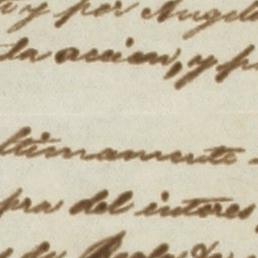 y por Angel
ta accion, y p
ltimamente
pra del interes